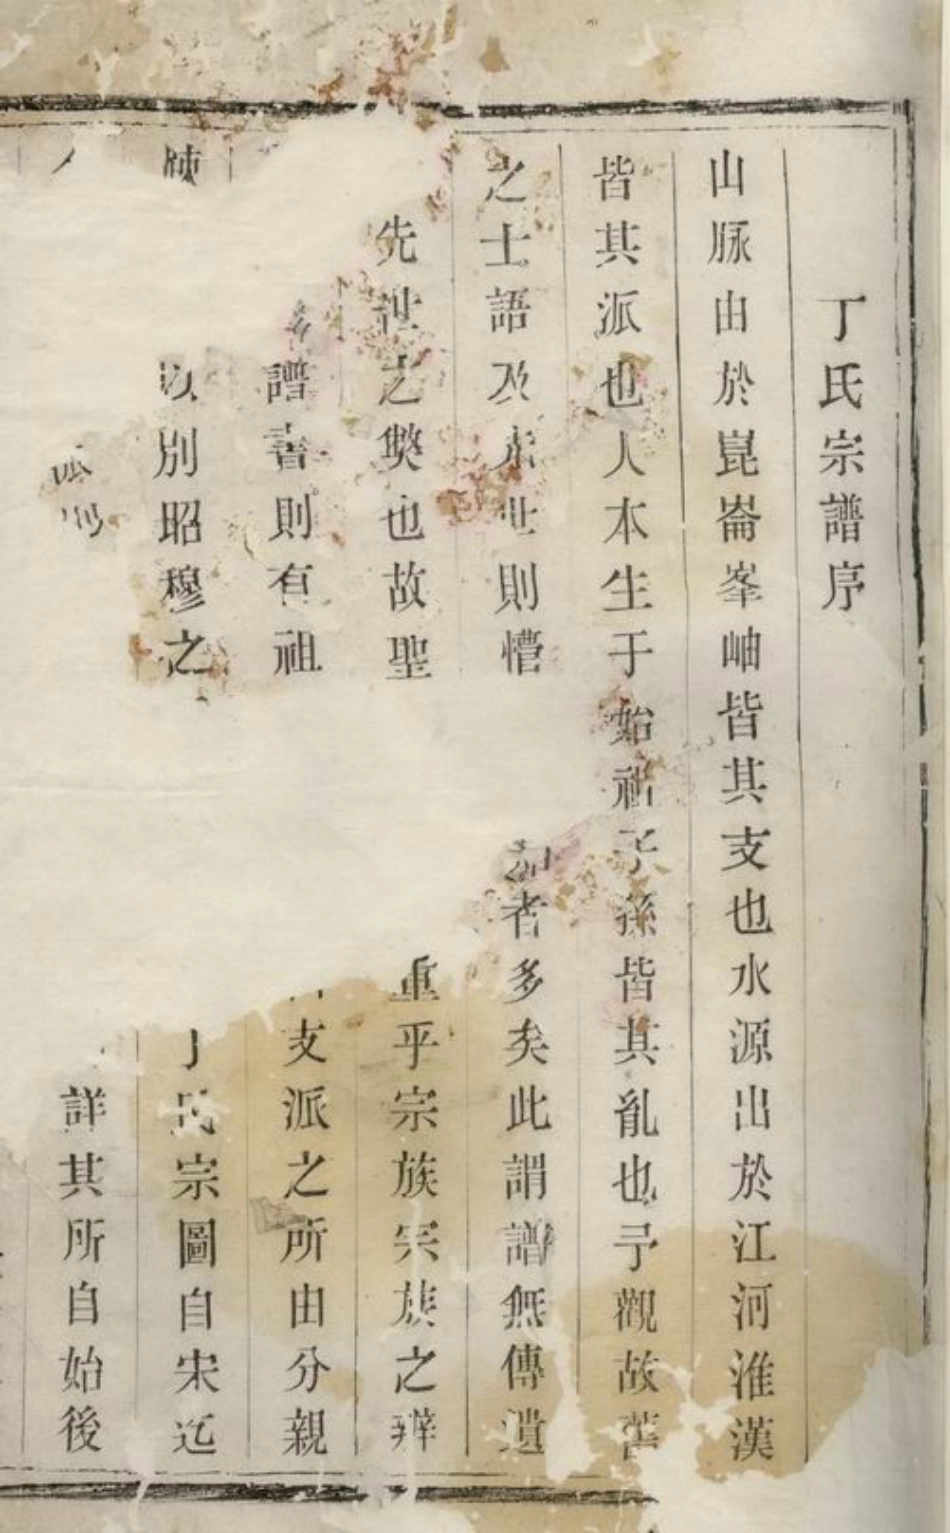 丁氏宗譜序
山脈由於崑崙峯岫皆其支也水源出於江河淮漢
皆其派也人本生于始祖子孫皆其亂也予觀故舊
之士語及來世則懵 者多矣此謂譜無傳遺
先世之獘也故聖 重乎宗族宗族之辨
譜書則有祖 支派之所由分親
以別昭穆之 丁氏宗圖自宋迄
詳其所自始後